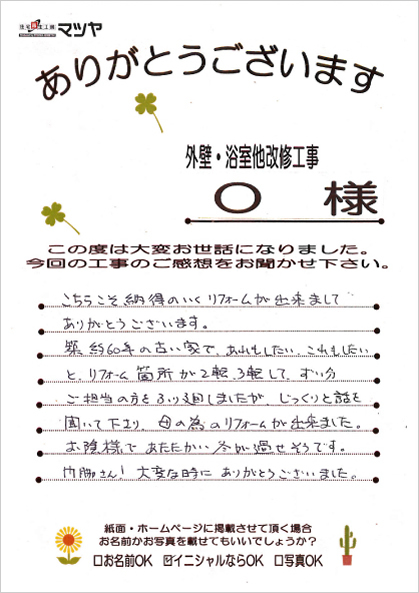 住宅再生工房 マツヤ
ありがとうございます
外壁・浴室他改修工事
O 様
この度は大変お世話になりました。
今回の工事のご感想をお聞かせ下さい。
こちらこそ納得のいくリフォームが出来まして
ありがとうございます。
築約60年の古い家で、あれもしたい、これもしたい
と、リフォーム箇所が2転、3転して、ずい分
ご担当の方をふり回しましたが、じっくりと話を
聞いて下さり、母の為のリフォームが出来ました。
お陰様であたたかい冬が過せそうです。
さん! 大変な時にありがとうございました。
紙面・ホームページに掲載させて頂く場合
お名前かお写真を載せてもいいでしょうか?
□お名前OK ☑イニシャルならOK □写真OK